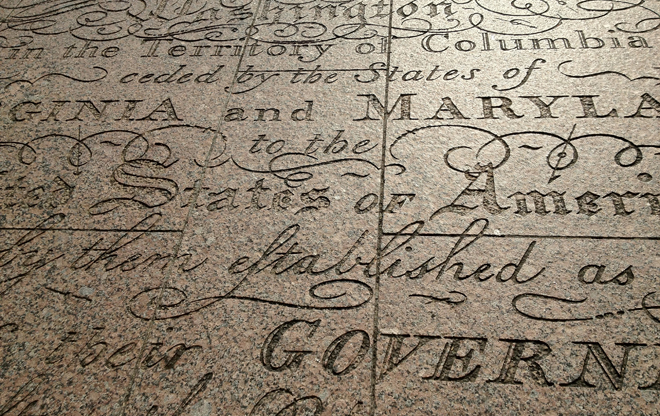 Washington
in the Territory of Columbia
ceded by the States of
GINIA and MARYLA
to the
States OF Ameri
by them eſtabliſhed as
their GOVERN